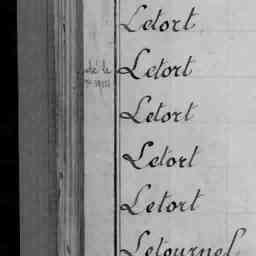 Letort
Letort
Letort
Letort
Letort
Letournel